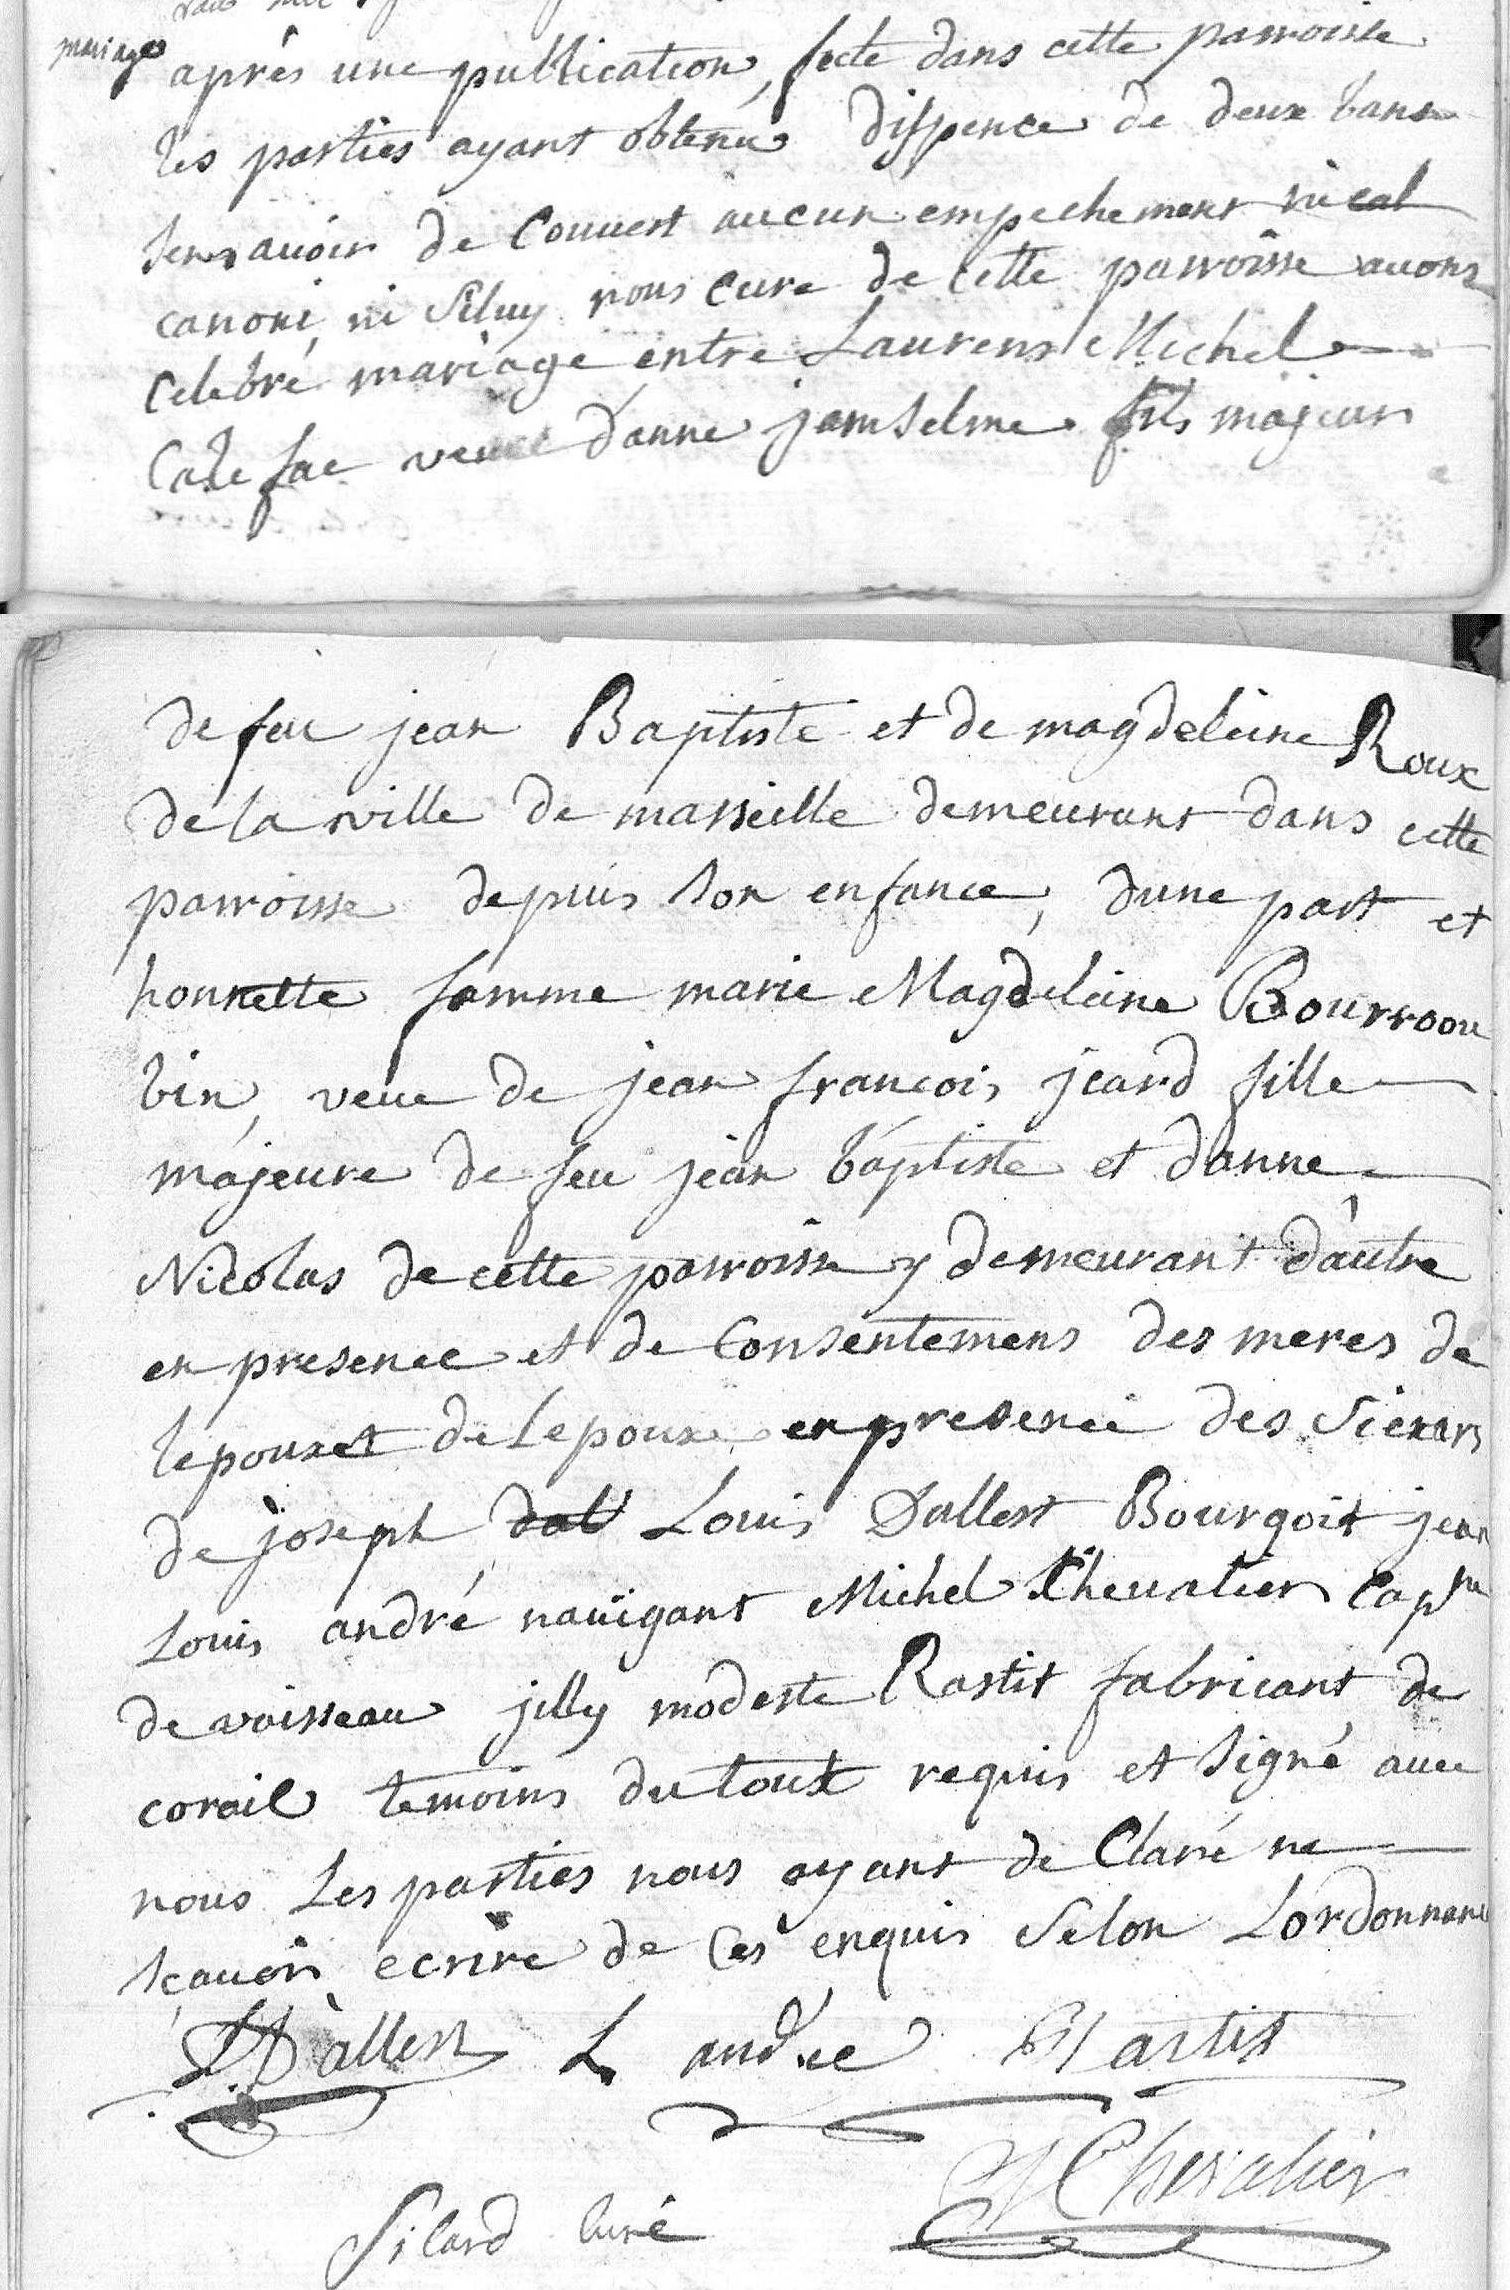 mariage
après une publication, fecte dans cette parroisse
les parties ayant obtenu dispence de deux bans
sens avoir de Couuert aucun empechement ni cal
canoni, ni Siluy nous cure de cette parroisse auons
Celebré mariage entre Laurens Michel
veuve d'anne jamselme fils majeur
de feu jean Baptiste et de magdeleine Roux
de la ville de marseille demeurant dans cette
parroisse depuis son enfance, dune part et
honnette famme marie Magdeleine Bourroou
bin, veue de jean francois jcard fille
majeure de feu jean baptiste et danne
Nicolas de cette parroisse y demeurant d'autre
en presence et de Consentemens des meres de
lepouse et de Lepoux en presence des Sieurs
de joseph dal Louis Dallest Bourgois jean
Louis andré nauigant Michel Cheualier Capne
de vaisseau jilly modeste Rastit fabricant de
corail temoins du tout requis et signé auec
nous Les parties nous ayant de Claré ne
scauoir ecrire de Ces enquis Selon Lordonnance
Dallest L andre Rastit
Chevalier
Silard Curé